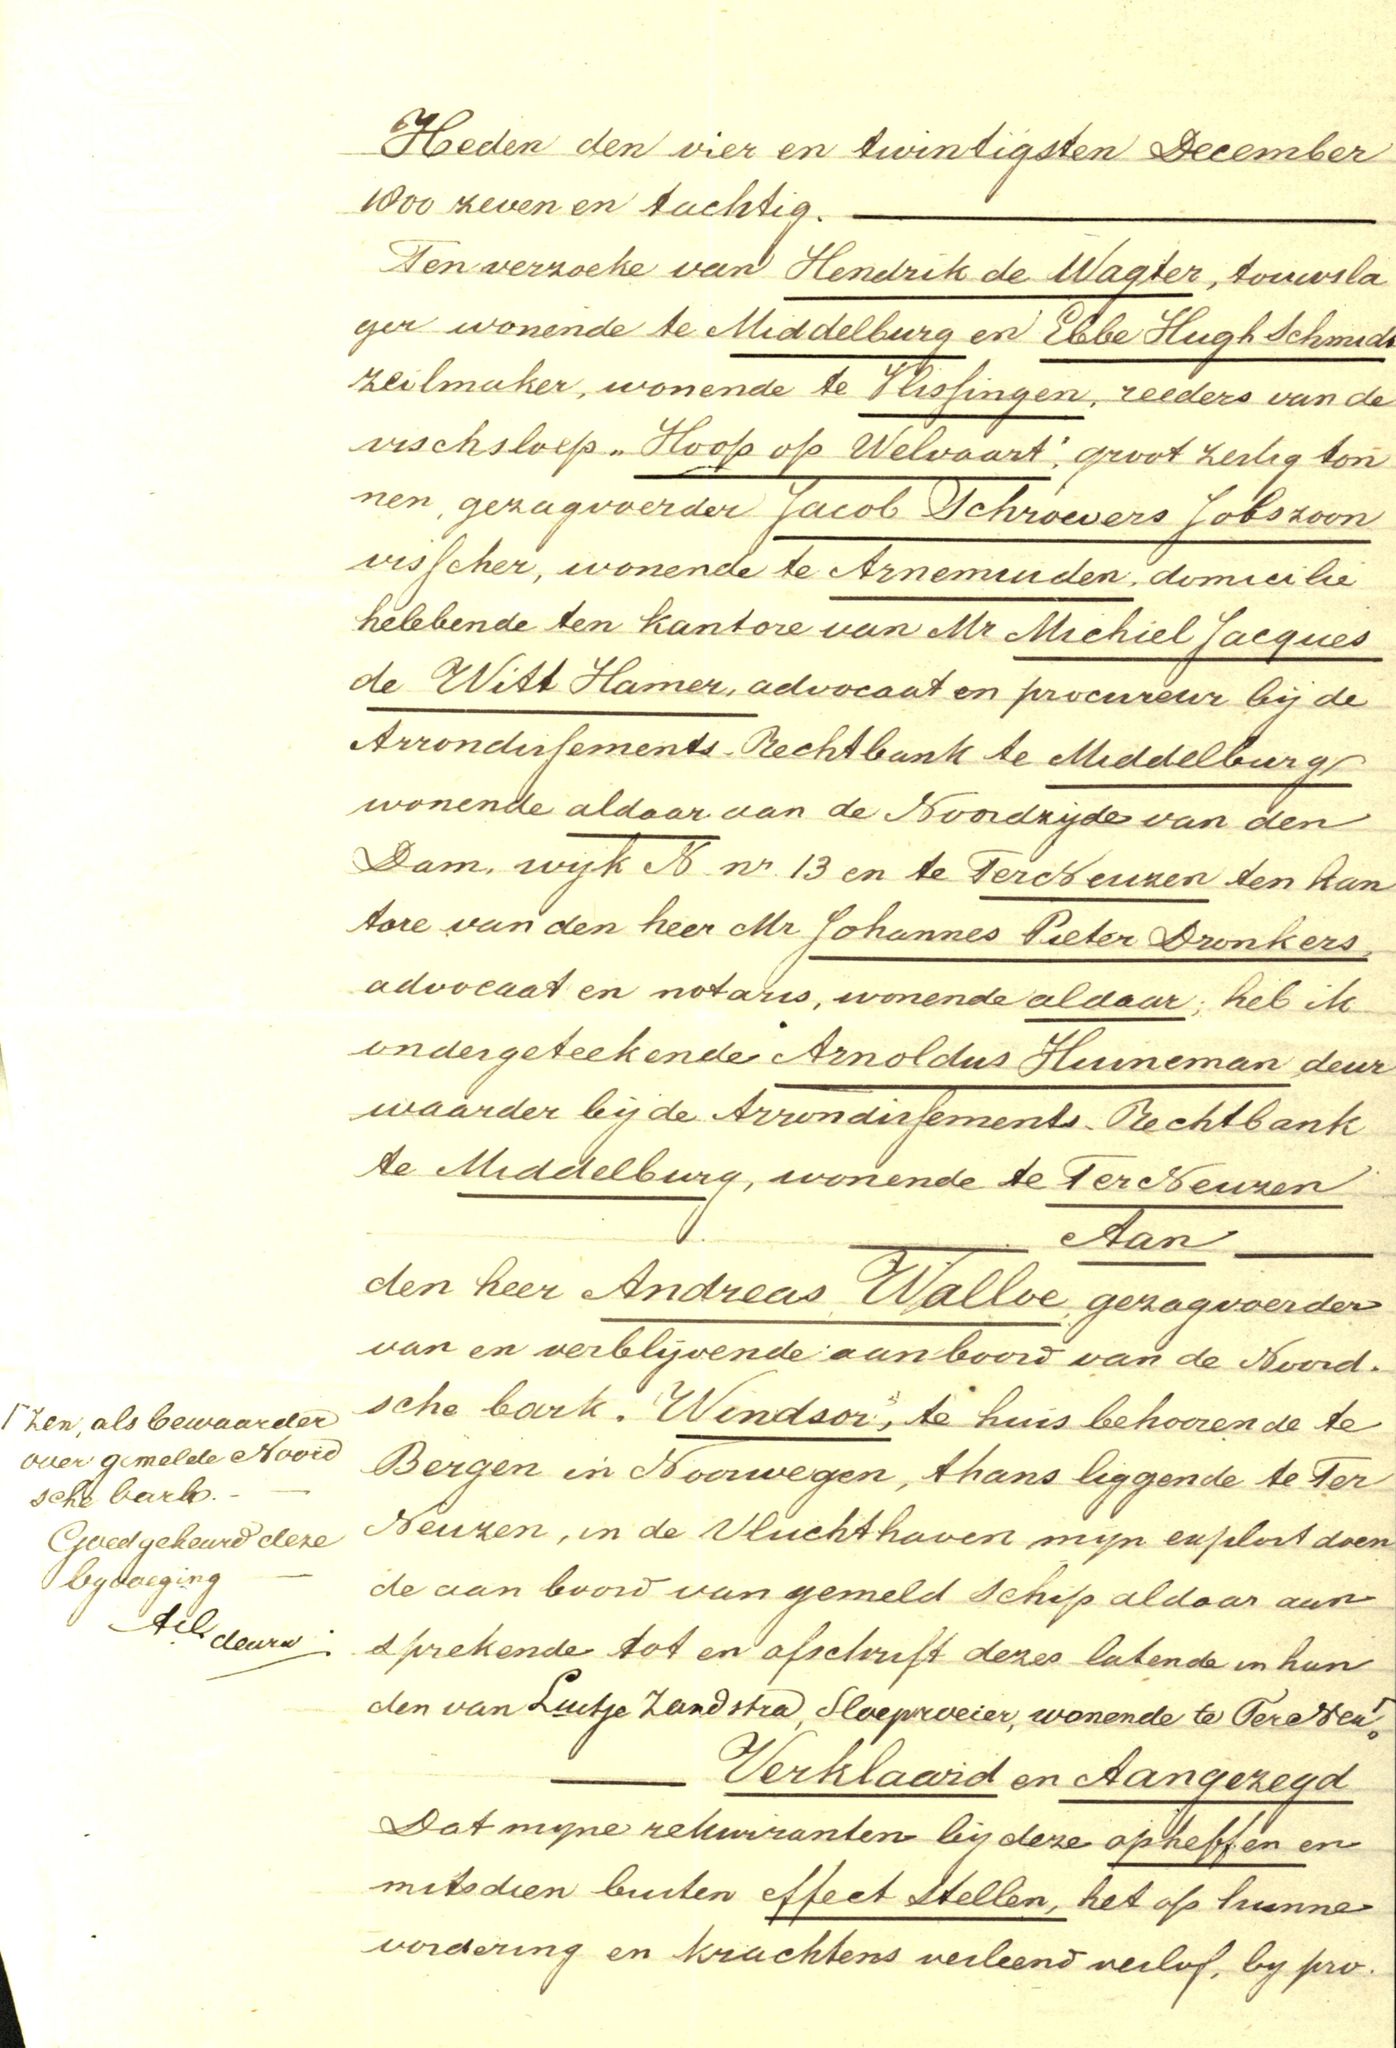 Heden den vier en twintigsten December
1800 zeven en tachtig.
Ten verzoeke van Hendrik de Wagter, touwsla
ger wonende te Middelburg en Ebbe Hugh Schmidt
zeilmaker, wonende te Vlissingen, reeders van de
vischsloep „Hoop op Welvaart", groot zestig ton
nen, gezagvoerder Jacob Schroevers Jobszoon
visscher, wonende te Arnemuiden, domicilie
hebbende ten kantore van Mr Michiel Jacques
de Witt Hamer, advocaat en procureur bij de
Arrondissements-Rechtbank te Middelburg
wonende aldaar aan de Noordzijde van den
Dam, wijk N nr. 13 en te TerNeuzen ten kan
tore van den heer Mr Johannes Pieter Dronkers,
advocaat en notaris, wonende aldaar, heb ik
ondergeteekende Arnoldus Huineman deur
waarder bij de Arrondissements-Rechtbank
te Middelburg, wonende te TerNeuzen
Aan
den heer Andreas Walloe, gezagvoerder
van en verblijvende aan boord van de Noord-
sche bark „Windsor", te huis behoorende te
Bergen in Noorwegen, thans liggende te Ter
Neuzen, in de Vluchthaven mijn exploit doen
de aan boord van gemeld schip aldaar aan
sprekende tot en afschrift dezes latende in han
den van Luitje Zandstra, Sloeproeier, wonende te TerNeu
Verklaard en Aangezegd
Dat mijne rekwiranten bij deze opheffen en
mitsdien buiten effect stellen, het op hunne
vordering en krachtens verleend verlof, bij pro-
zen, als bewaarder
over gemelde Noord
sche bark.
Goedgekeurd deze
bijvoeging
deurw